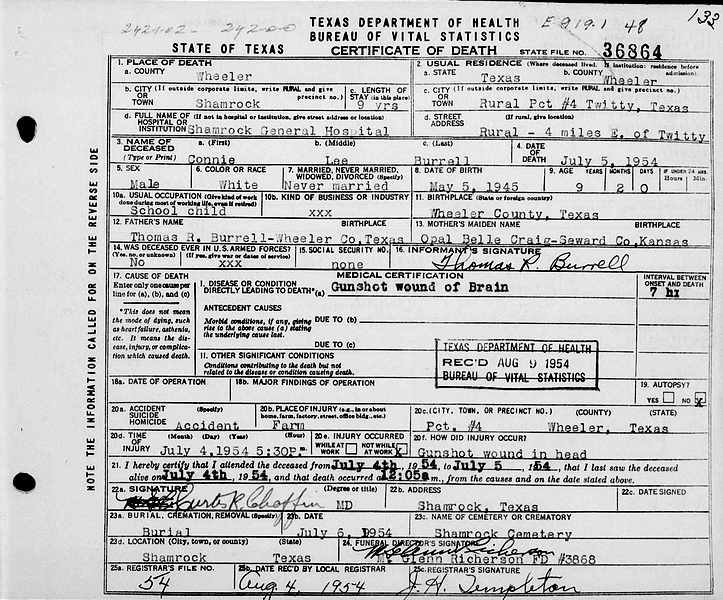 2421-02 - 242-00
TEXAS DEPARTMENT OF HEALTH
E 919.1 48
133
BUREAU OF VITAL STATISTICS
STATE OF TEXAS
CERTIFICATE OF DEATH
STATE FILE NO. 36864
1. PLACE OF DEATH
a. COUNTY
Wheeler
2. USUAL RESIDENCE (Where deceased lived. If institution: residence before admission)
a. STATE
Texas
b. COUNTY
Wheeler
b. CITY (If outside corporate limits, write RURAL and give precinct no.)
OR
TOWN
Shamrock
c. LENGTH OF STAY (in this place)
9 yrs
c. CITY (If outside corporate limits, write RURAL and give precinct no.)
OR
TOWN
Rural Pct #4 Twitty, Texas
d. FULL NAME OF (If not in hospital or institution, give street address or location)
HOSPITAL OR
INSTITUTION
Shamrock General Hospital
d. STREET ADDRESS
(If rural, give location)
Rural - 4 miles E. of Twitty
3. NAME OF DECEASED
(Type or Print)
a. (First)
Connie
b. (Middle)
Lee
c. (Last)
Burrell
4. DATE OF DEATH
July 5, 1954
5. SEX
Male
6. COLOR OR RACE
White
7. MARRIED, NEVER MARRIED, WIDOWED, DIVORCED (Specify)
Never married
8. DATE OF BIRTH
May 5, 1945
9. AGE YEARS MONTHS DAYS
9 2 0
IF UNDER 24 HRS
Hours Min.
10a. USUAL OCCUPATION (Give kind of work done during most of working life, even if retired)
School child
10b. KIND OF BUSINESS OR INDUSTRY
xxx
11. BIRTHPLACE (State or foreign country)
Wheeler County, Texas
12. FATHER'S NAME BIRTHPLACE
Thomas R. Burrell-Wheeler Co,Texas
13. MOTHER'S MAIDEN NAME BIRTHPLACE
Opal Belle Craig-Seward Co,Kansas
14. WAS DECEASED EVER IN U.S. ARMED FORCES?
(Yes, no, or unknown) (If yes, give war or dates of service)
No xxx
15. SOCIAL SECURITY NO.
none
16. INFORMANT'S SIGNATURE
Thomas R. Burrell
17. CAUSE OF DEATH
Enter only one cause per line for (a), (b), and (c)
*This does not mean the mode of dying, such as heart failure, asthenia, etc. It means the disease, injury, or complication which caused death.
MEDICAL CERTIFICATION
INTERVAL BETWEEN ONSET AND DEATH
I. DISEASE OR CONDITION
DIRECTLY LEADING TO DEATH*(a)
Gunshot wound of Brain
7 h
ANTECEDENT CAUSES
Morbid conditions, if any, giving rise to the above cause (a) stating the underlying cause last.
DUE TO (b)
DUE TO (c)
TEXAS DEPARTMENT OF HEALTH
REC'D AUG 9 1954
BUREAU OF VITAL STATISTICS
II. OTHER SIGNIFICANT CONDITIONS
Conditions contributing to the death but not related to the disease or condition causing death.
18a. DATE OF OPERATION
18b. MAJOR FINDINGS OF OPERATION
19. AUTOPSY?
YES NO X
20a. ACCIDENT SUICIDE HOMICIDE (Specify)
Accident
20b. PLACE OF INJURY (e.g., in or about home, farm, factory, street, office bldg., etc.)
Farm
20c. (CITY, TOWN, OR PRECINCT NO.) (COUNTY) (STATE)
Pct. #4 Wheeler, Texas
20d. TIME OF INJURY (Month) (Day) (Year) (Hour)
July 4,1954 5:30P.m.
20e. INJURY OCCURRED
WHILE AT WORK NOT WHILE AT WORK X
20f. HOW DID INJURY OCCUR?
Gunshot wound in head
21. I hereby certify that I attended the deceased from July 4th, 1954, to July 5, 1954, that I last saw the deceased
alive on July 4th, 1954, and that death occurred at 12:05a m., from the causes and on the date stated above.
22a. SIGNATURE (Degree or title)
Curtis R. Chaffin MD
22b. ADDRESS
Shamrock, Texas
22c. DATE SIGNED
23a. BURIAL, CREMATION, REMOVAL (Specify)
Burial
23b. DATE
July 6, 1954
23c. NAME OF CEMETERY OR CREMATORY
Shamrock Cemetery
23d. LOCATION (City, town, or county) (State)
Shamrock Texas
24. FUNERAL DIRECTOR'S SIGNATURE
M. Glenn Richerson FD #3868
25a. REGISTRAR'S FILE NO.
54
25b. DATE REC'D BY LOCAL REGISTRAR
Aug. 4, 1954
25c. REGISTRAR'S SIGNATURE
J. H. Templeton
NOTE THE INFORMATION CALLED FOR ON THE REVERSE SIDE